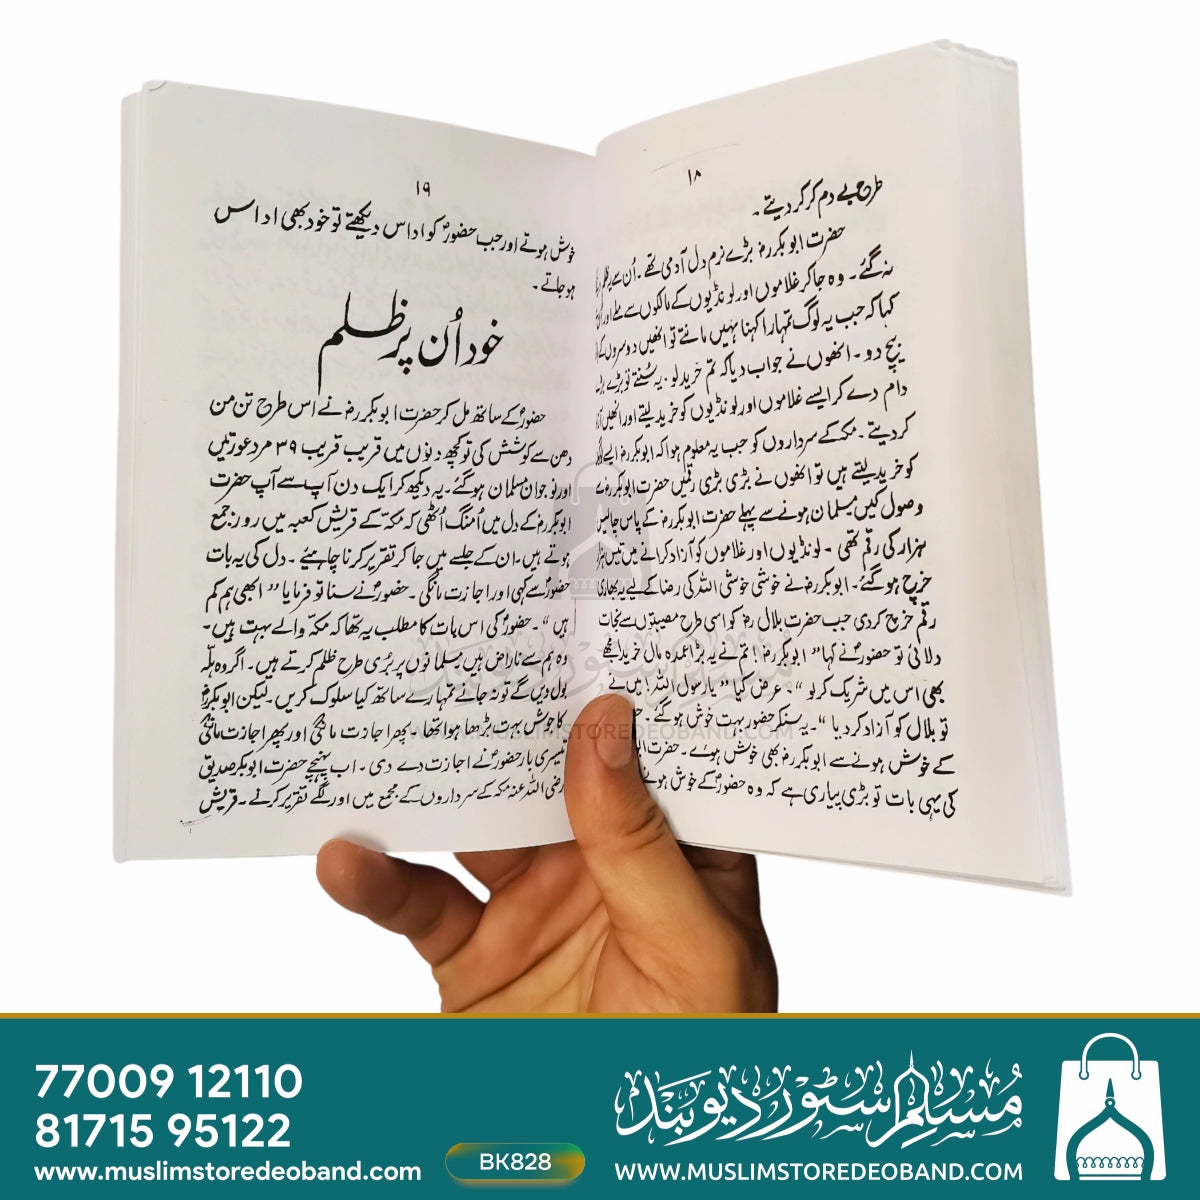 ۱۸
طرح بے دم کر کر دیتے۔
حضرت ابوبکرؓ بڑے نرم دل آدمی تھے۔ اُن سے یہ ظلم
نہ گئے۔ وہ جا کر غلاموں اور لونڈیوں کے مالکوں سے ملے اور ان
کہا کہ جب یہ لوگ تمہارا کہنا نہیں مانتے تو انھیں دوسروں کے
بیچ دو۔ انھوں نے جواب دیا کہ تم خرید لو۔ یہ سُنتے تو بڑے بڑے
دام دے کر ایسے غلاموں اور لونڈیوں کو خرید لیتے اور انھیں
کر دیتے۔ مکہ کے سرداروں کو جب یہ معلوم ہوا کہ ابوبکرؓ ایسے
کو خرید لیتے ہیں تو انھوں نے بڑی بڑی رقمیں حضرت ابوبکرؓ سے
وصول کیں مسلمان ہونے سے پہلے حضرت ابوبکرؓ کے پاس چالیس
ہزار کی رقم تھی۔ لونڈیوں اور غلاموں کو آزاد کرانے میں تیس ہزار
خرچ ہو گئے۔ ابوبکرؓ نے خوشی خوشی اللہ کی رضا کے لیے یہ بھاری
رقم خرچ کر دی جب حضرت بلالؓ کو اسی طرح مصیبتوں سے نجات
دلائی تو حضورؐ نے کہا "ابوبکرؓ! تم نے یہ بڑا عمدہ مال خریدا مجھے
بھی اس میں شریک کر لو"۔ عرض کیا "یا رسول اللہ! میں نے
تو بلال کو آزاد کر دیا"۔ یہ سنکر حضور بہت خوش ہو گئے۔
کے خوش ہونے سے ابوبکرؓ بھی خوش ہوئے۔ حضرت
کی یہی بات تو بڑی پیاری ہے کہ وہ حضورؐ کے خوش ہونے
۱۹
خوش ہوتے اور جب حضورؐ کو اداس دیکھتے تو خود بھی اداس
ہو جاتے۔
خود اُن پر ظلم
حضورؐ کے ساتھ مل کر حضرت ابوبکرؓ نے اس طرح تن من
دھن سے کوشش کی تو کچھ دنوں میں قریب قریب ۳۹ مرد عورتیں
اور نوجوان مسلمان ہو گئے۔ یہ دیکھ کر ایک دن آپ سے آپ حضرت
ابوبکرؓ کے دل میں اُمنگ اُٹھی کہ مکہ کے قریش کعبہ میں روز جمع
ہوتے ہیں۔ ان کے جلسے میں جا کر تقریر کرنا چاہیئے۔ دل کی یہ بات
حضورؐ سے کہی اور اجازت مانگی۔ حضورؐ نے سنا تو فرمایا "ابھی ہم کم
ہیں"۔ حضورؐ کی اس بات کا مطلب یہ تھا کہ مکہ والے بہت ہیں۔
وہ ہم سے ناراض ہیں مسلمانوں پر بُری طرح ظلم کرتے ہیں۔ اگر وہ ہلّہ
بول دیں گے تو نہ جانے تمہارے ساتھ کیا سلوک کریں۔ لیکن ابوبکرؓ
کا جوش بہت بڑھا ہوا تھا۔ پھر اجازت مانگی اور پھر اجازت مانگی
تیسری بار حضورؐ نے اجازت دے دی۔ اب پہنچے حضرت ابوبکر صدیق
رضی اللہ عنہ مکہ کے سرداروں کے مجمع میں اور لگے تقریر کرنے۔ قریش
مسلم سٹور دیوبند
WWW.MUSLIMSTOREDEOBAND.COM
77009 12110
81715 95122
www.muslimstoredeoband.com
BK828
مسلم سٹور دیوبند
WWW.MUSLIMSTOREDEOBAND.COM